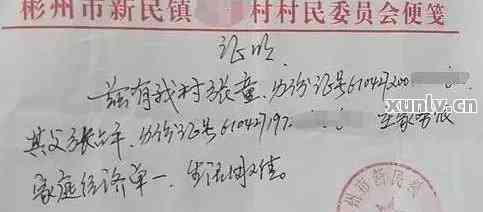 彬州市新民镇 村村民委员会便笺
证明
兹有我村张童、身份证号610427200
其父张占平、身份证号610427197 至家务农
家庭经济单一、生活困难。
州市新民镇
xunlv.cn